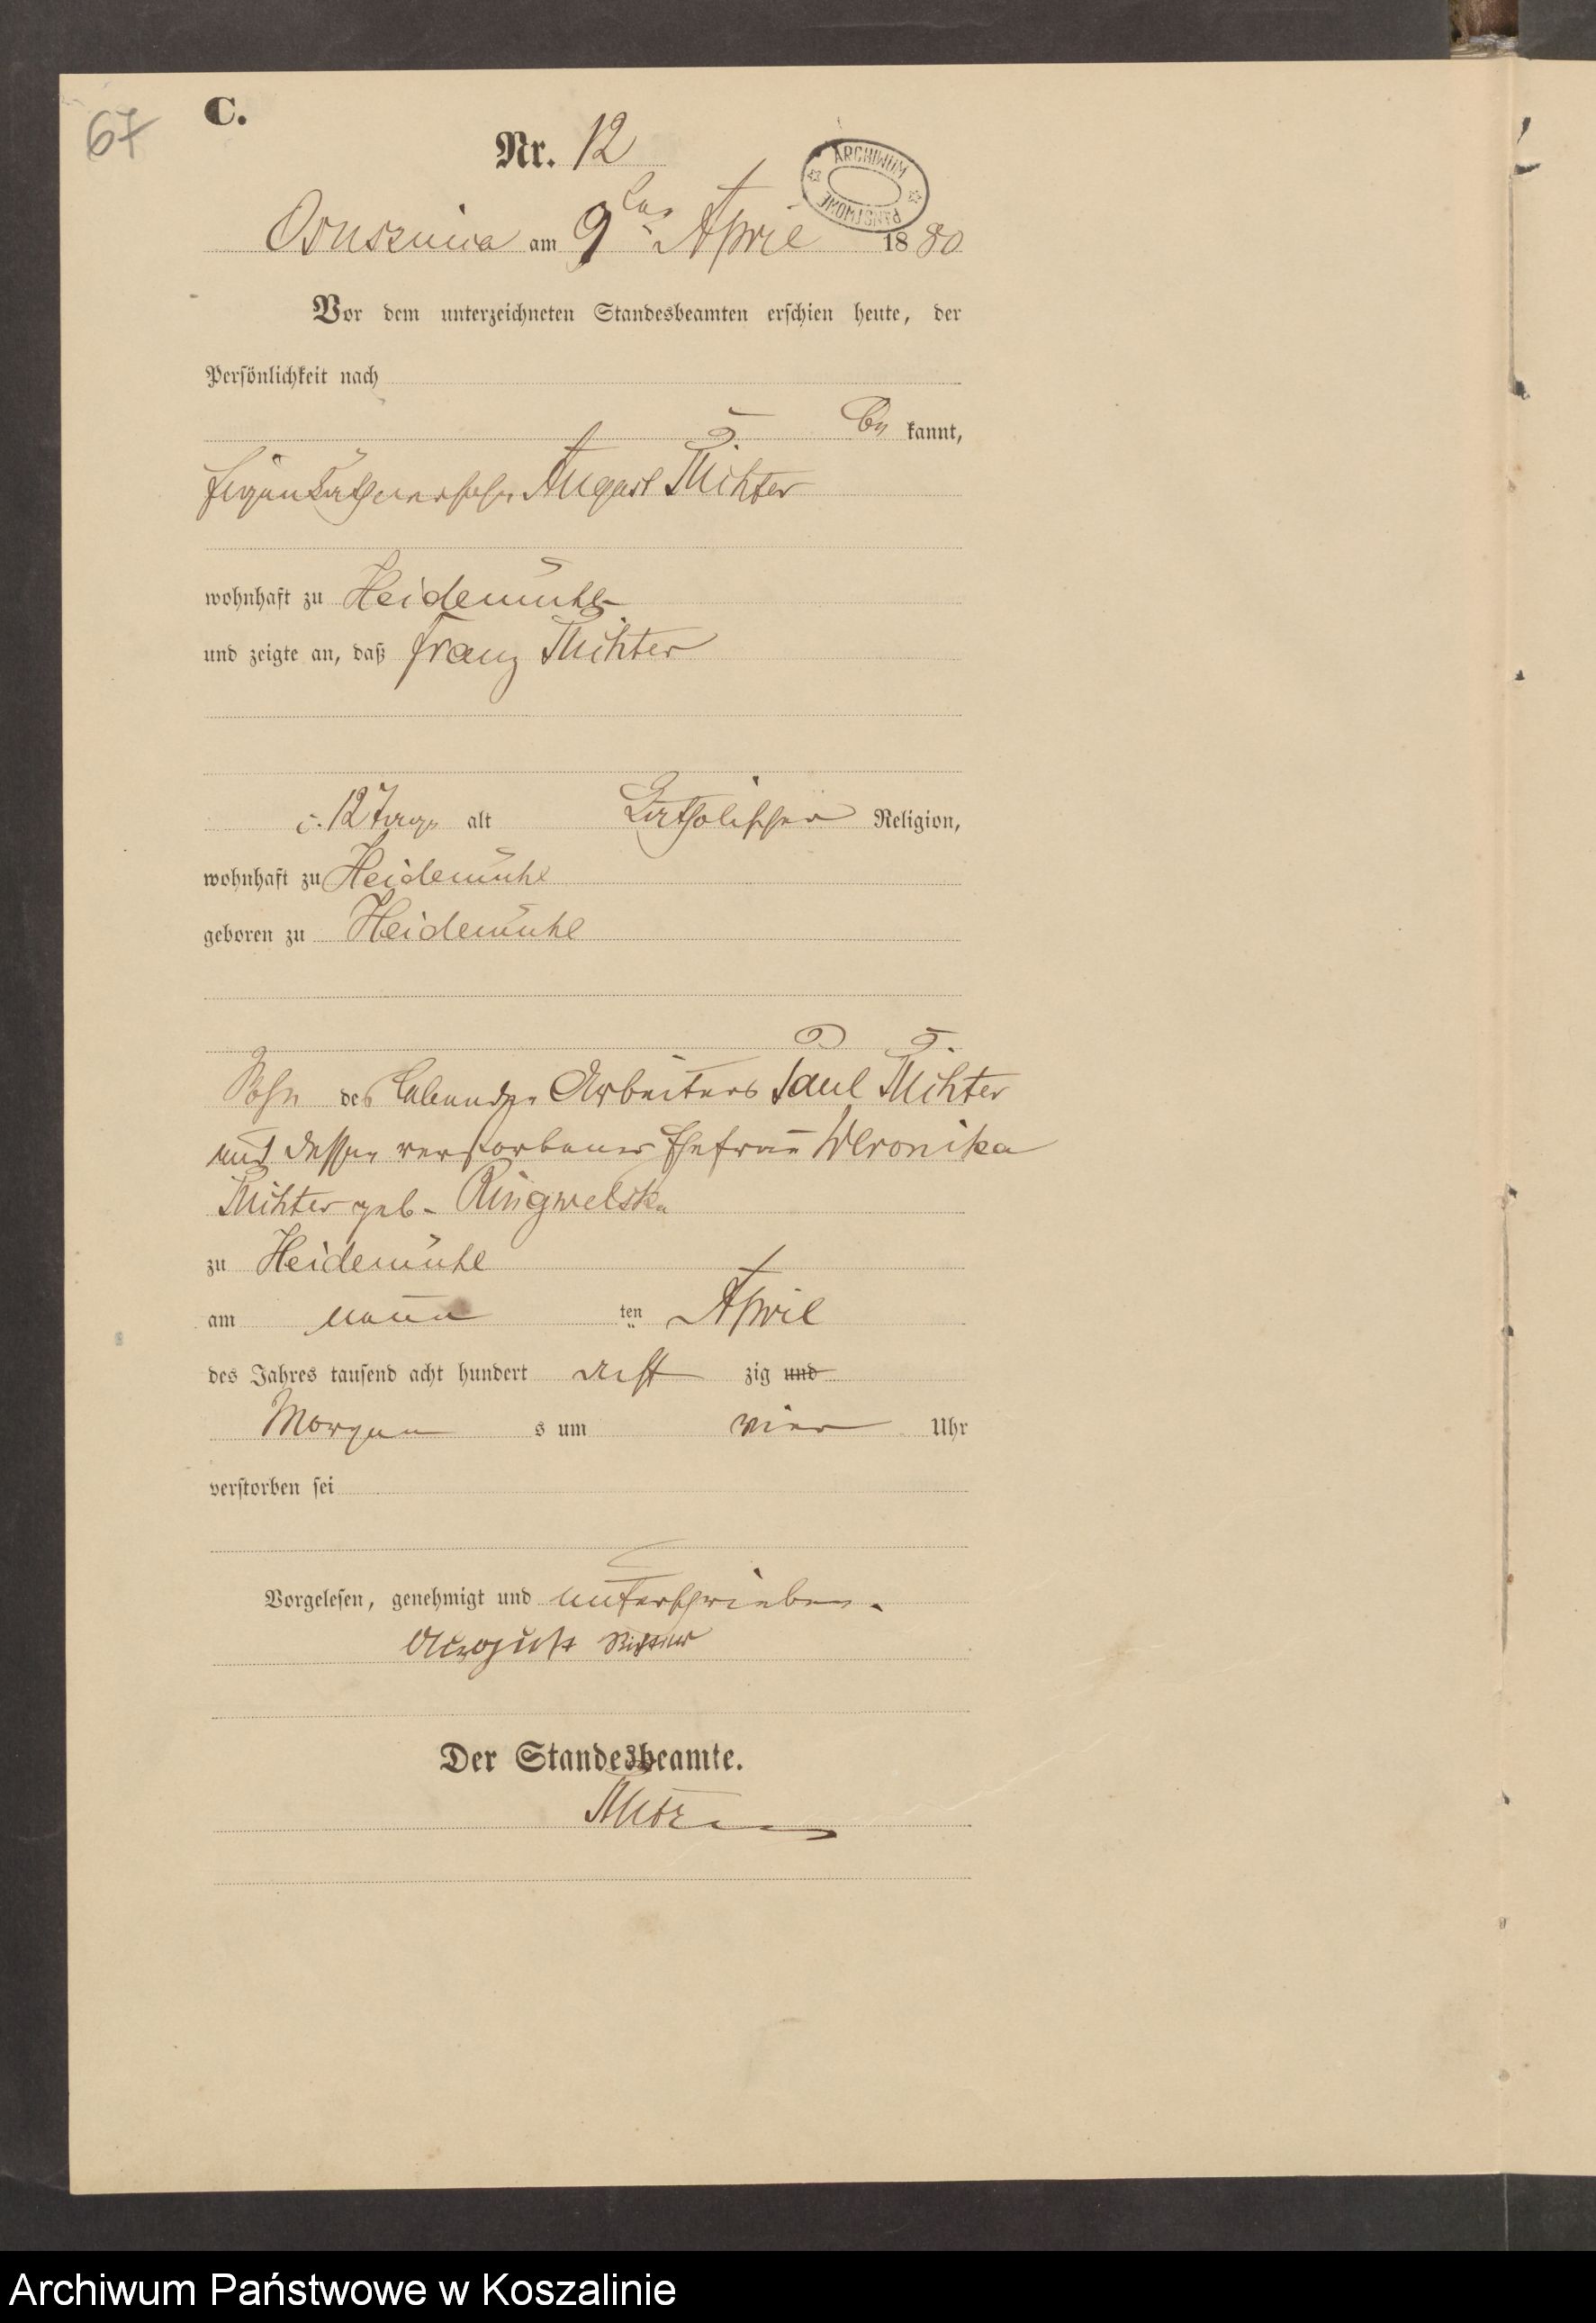 67
C.
Nr. 12
ARCHIWUM PAŃSTWOWE
Ossusznica am 9ten April 1880
Vor dem unterzeichneten Standesbeamten erschien heute, der
Persönlichkeit nach
be kannt,
Eigenkäthnersohn August Richter
wohnhaft zu Heidemühl
und zeigte an, daß Franz Richter
12 Tage alt katholischer Religion,
wohnhaft zu Heidemühl
geboren zu Heidemühl
Sohn des lebenden Arbeiters Paul Richter
und dessen verstorbener Ehefrau Weronika
Richter geb. Ringwelska
zu Heidemühl
am neun ten April
des Jahres tausend acht hundert acht zig und
Morgen s um vier Uhr
verstorben sei
Vorgelesen, genehmigt und unterschrieben.
August Richter
Der Standesbeamte.
Archiwum Państwowe w Koszalinie